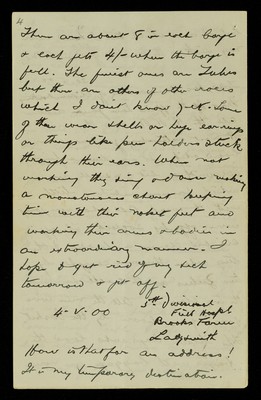 4
There are about 8 in each barge
& each gets 4/- when the barge is
full. The finest ones are Zulus
but there are others of other races
which I don't know yet. Some
of them wear shells or huge earrings
or things like pen holders stuck
through their ears. When not
working they sing & dance making
a monotonous chant keeping
time with their naked feet and
working their arms & bodies in
an extraordinary manner. I
hope to get rid of my sick
tomorrow & get off.
4-V-00
5th Divisional
Field Hospl
Brooks Farm
Ladysmith
How is that for an address!
It is my temporary destination.